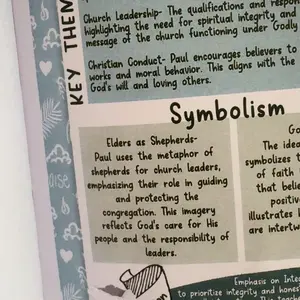 KEY THEM
Church Leadership- The qualifications and respon
highlighting the need for spiritual integrity and
message of the church functioning under Godly
Christian Conduct- Paul encourages believers to
works and moral behavior. This aligns with the
God's will and loving others.
Symbolism
Elders as Shepherds-
Paul uses the metaphor of
shepherds for church leaders,
emphasizing their role in guiding
and protecting the
congregation. This imagery
reflects God's care for His
people and the responsibility of
leaders.
Go
The idea
symbolizes t
of faith
that belie
positiv
illustrates
are intertw
Emphasis on Inte
to prioritize integrity and hones